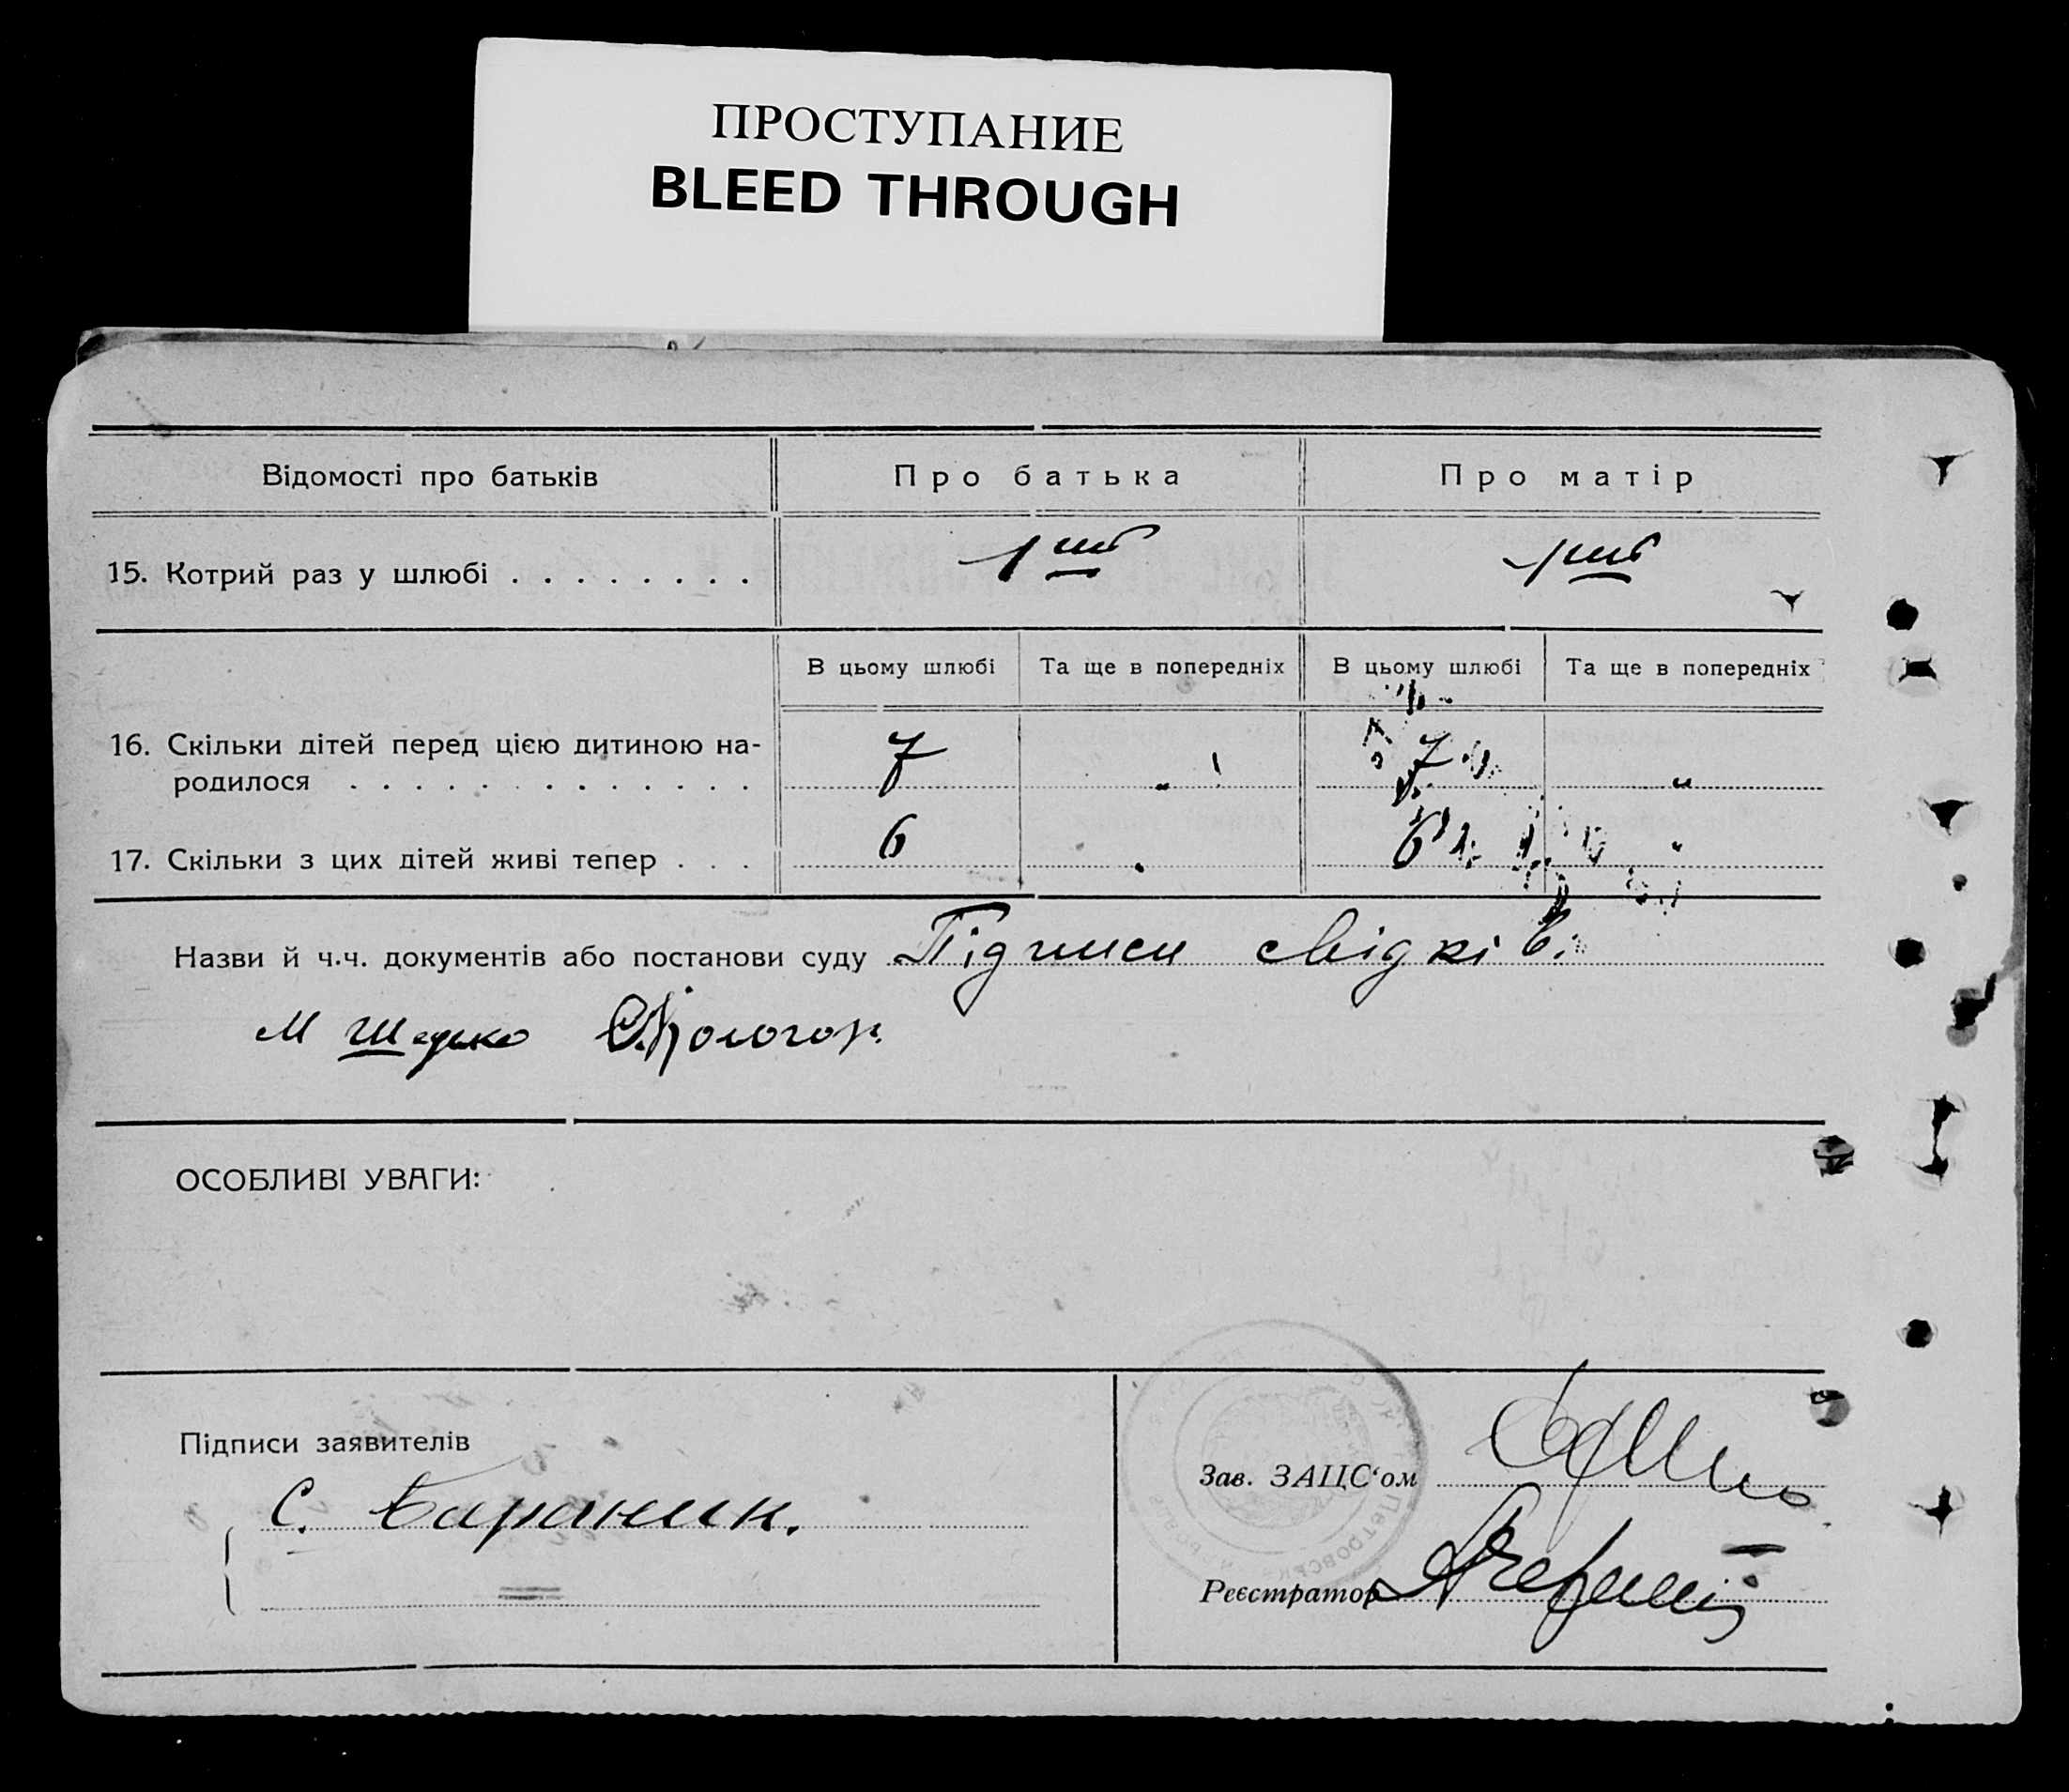 ПРОСТУПАНИЕ
BLEED THROUGH
Відомості про батьків Про батька Про матір
15. Котрий раз у шлюбі . . . . . . . . 1ий 1ий
В цьому шлюбі Та ще в попередніх В цьому шлюбі Та ще в попередніх
16. Скільки дітей перед цією дитиною на-
родилося . . . . . . . . . . . . . 7 „ 7 „
17. Скільки з цих дітей живі тепер . . . 6 „ 6 „
Назви й ч.ч. документів або постанови суду Підписи свідків:
М
ОСОБЛИВІ УВАГИ:
Підписи заявителів
С. Бараник.
Зав. ЗАЦС‘ом
Реєстратор